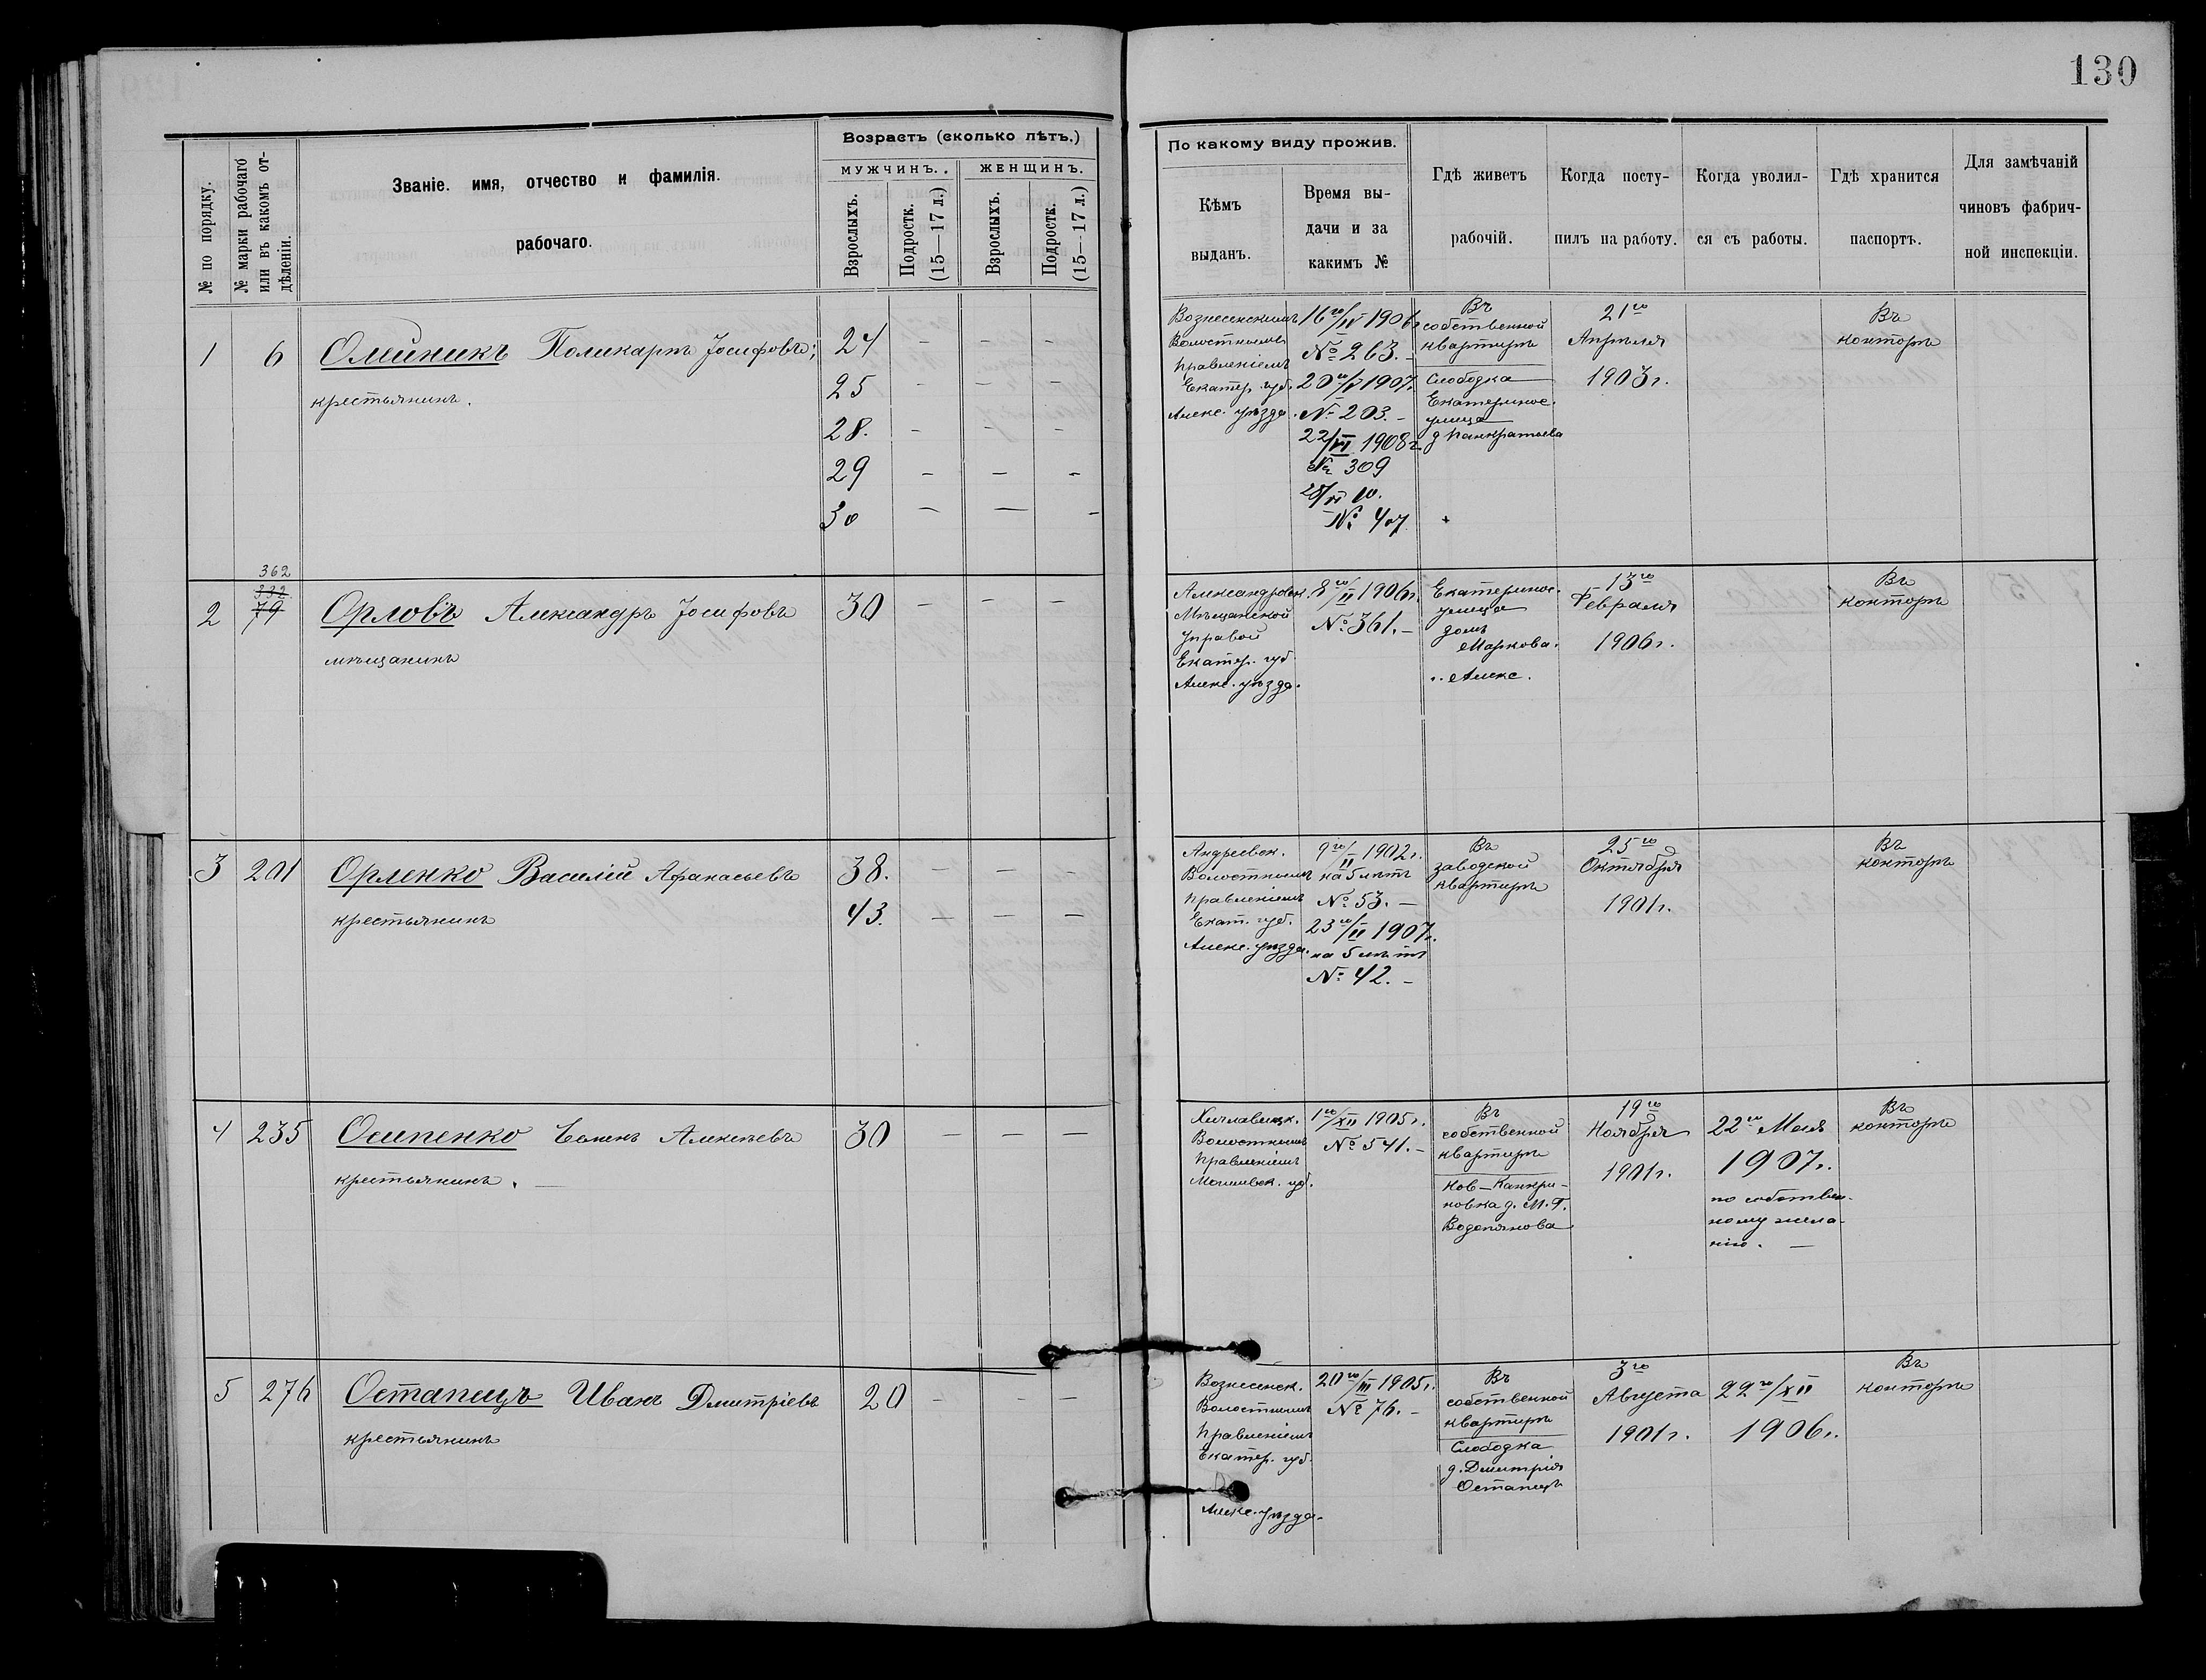 130
Возрастъ (сколько лѣтъ.)
МУЖЧИНЪ. . ЖЕНЩИНЪ.
№ по порядку.
№ марки рабочаго
или въ какомъ от-
дѣленіи.
Званіе. имя, отчество и фамилія.
рабочаго.
Взрослыхъ.
Подростк.
(15—17 л.)
Взрослыхъ.
Подростк.
(15—17 л.)
По какому виду прожив.
Кѣмъ
выданъ.
Время вы-
дачи и за
какимъ №
Гдѣ живетъ
рабочій.
Когда посту-
пилъ на работу.
Когда уволил-
ся съ работы.
Гдѣ хранится
паспортъ.
Для замѣчаній
чиновъ фабрич-
ной инспекціи.
1 6 Олейникъ Поликарпъ Іосифовъ; 24 — — —
крестьянинъ. 25 — — —
28. — — —
29 — — —
30 — — —
Вознесенскимъ
Волостнымъ
Правленіемъ
Екатер. губ.
Алекс. уѣзда.
16го/IV 1906г
№ 263. —
20го/V 1907.
№ 203. —
22/VI 1908г
№ 309
28/VI 10.
№ 407
Въ
собственной
квартирѣ
Слободка
Екатеринос.
улица
д Панкратьева
21го
Апрѣля
1903г.
Въ
конторѣ
362
332.
2 79 Орловъ Александръ Іосифовъ 30 — — —
мѣщанинъ
Александровск.
Мѣщанской
Управой
Екатер. губ.
Алекс. уѣзда.
8го/II 1906г.
№ 361. —
Екатеринос.
улица
домъ
Маркова.
Алекс.
13го
Февраля
1906г.
Въ
конторѣ
3 201 Орленко Василій Афанасьевъ 38. — — —
крестьянинъ 43. — — —
Андреевск.
Волостнымъ
Правленіемъ
Екат. губ.
Алекс. уѣзда.
9го/II 1902г.
на 5 лѣтъ
№ 53. —
23го/II 1907г.
на 5 лѣтъ
№ 42. —
Въ
заводской
квартирѣ
25го
Октября
1901г.
Въ
конторѣ
4 235 Осипенко Семенъ Алексѣевъ 30 — — —
крестьянинъ. —
Хиславицк.
Волостнымъ
Правленіемъ
Могилевск. губ.
1го/XII 1905г.
№ 541. —
Въ
собственной
квартирѣ
Нов—Канкри-
новка д. М. Г.
Водопьянова
19го
Ноября
1901г.
22го Мая
1907г.
по собствен-
ному жела-
нію. —
Въ
конторѣ
5 276 Остапецъ Иванъ Дмитріевъ 20 — — —
крестьянинъ
Вознесенск.
Волостнымъ
Правленіемъ
Екатер. губ.
Алекс. уѣзда.
20го/III 1905г.
№ 76. —
Въ
собственной
квартирѣ
Слободка
д. Дмитрія
Остапецъ
3го
Августа
1901г.
22го/XII
1906г.
Въ
конторѣ